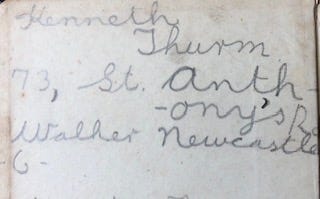 Kenneth
Thurm
73, St. Anth-
-ony's R
Walker Newcastle
-6-